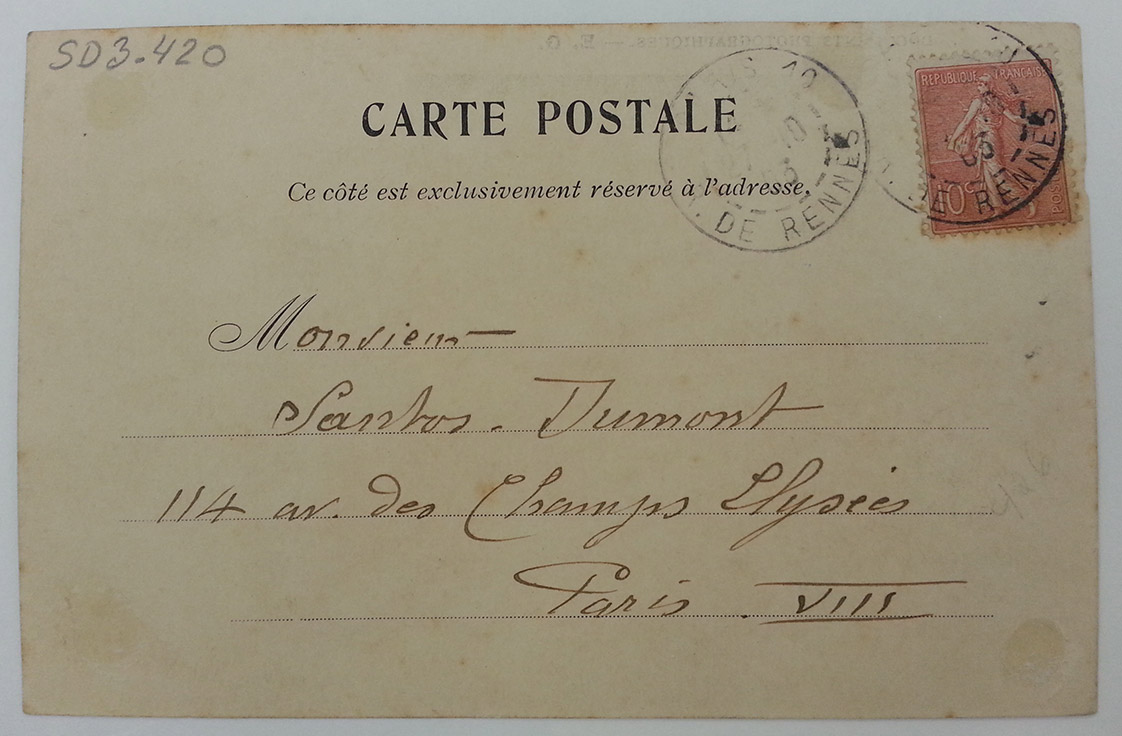 SD3-420
CARTE POSTALE
Ce côté est exclusivement réservé à l'adresse.
10
DE RENNES
REPUBLIQUE FRANÇAISE
10c
POSTES
03
DE RENNES
Monsieur
Santos-Dumont
114 av. des Champs Elysées
Paris VIII